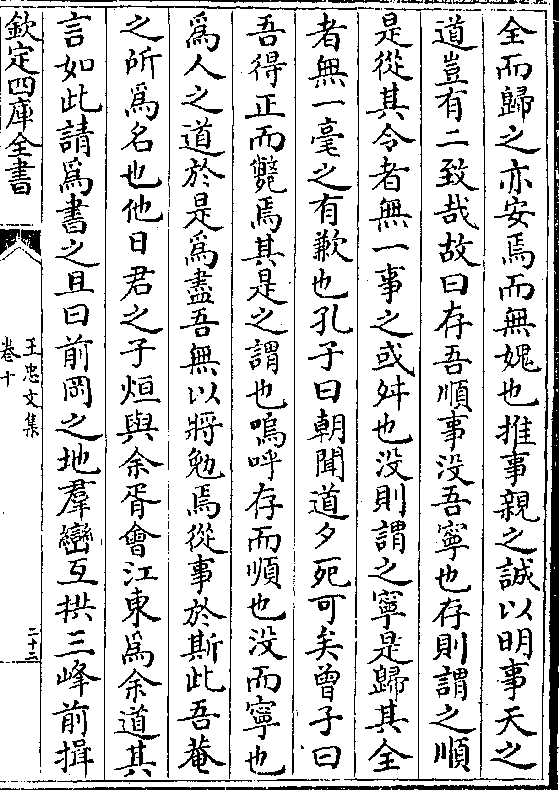 全而歸之亦安焉而無媿也推事親之誠以明事天之
道豈有二致哉故曰存吾順事没吾寧也存則謂之順
是從其令者無一事之或舛也没則謂之寧是歸其全
者無一毫之有歉也孔子曰朝聞道夕死可矣曾子曰
吾得正而斃焉其是之謂也嗚呼存而順也没而寧也
爲人之道於是爲盡吾無以將勉焉從事於斯此吾菴
之所爲名也他日君之子烜與余胥會江東爲余道其
言如此請爲書之且曰前岡之地羣巒互拱三峰前揖
欽定四庫全書
王忠文集
卷十
二十三